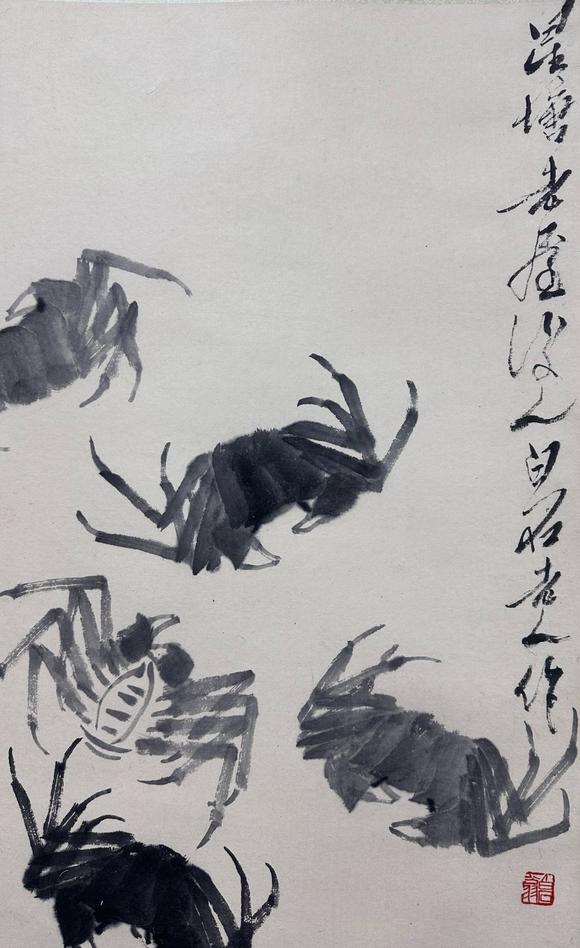 星塘老屋後人白石老人作